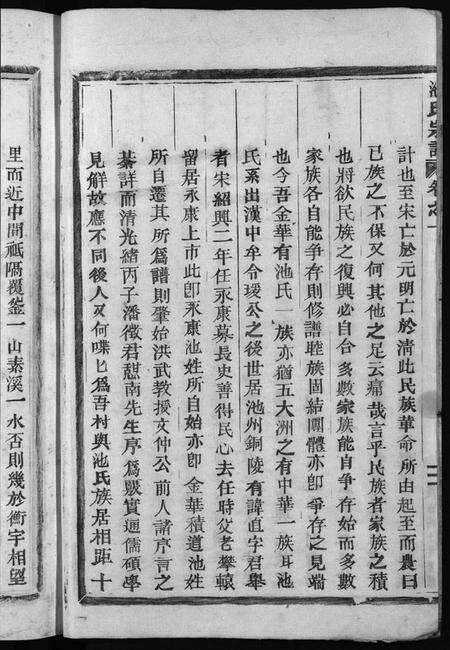 池氏宗譜 卷之一
計也至宋亡於元明亡於清此民族革命所由起至而農曰
己族之不保又何其他之足云痛哉言乎民族者家族之積
也將欲民族之復興必自合多數家族能自爭存始而多數
家族各自能爭存則修譜睦族固結團體亦卽爭存之見端
也今吾金華有池氏一族亦猶五大洲之有中華一族耳池
氏系出漢中牟令瑗公之後世居池州銅陵有諱直字君舉
者宋紹興二年任永康幕長史善得民心去任時父老攀轅
留居永康上市此卽永康池姓所自始亦卽金華積道池姓
所自遷其所爲譜則肇始洪武教授文仲公前人諸序言之
綦詳而清光緒丙子潘徵君慰南先生序爲最實通儒碩學
見解故應不同後人又何喋匕爲吾村與池氏族居相距十
里而近中間祗隔覆釜一山素溪一水否則幾於衡宇相望